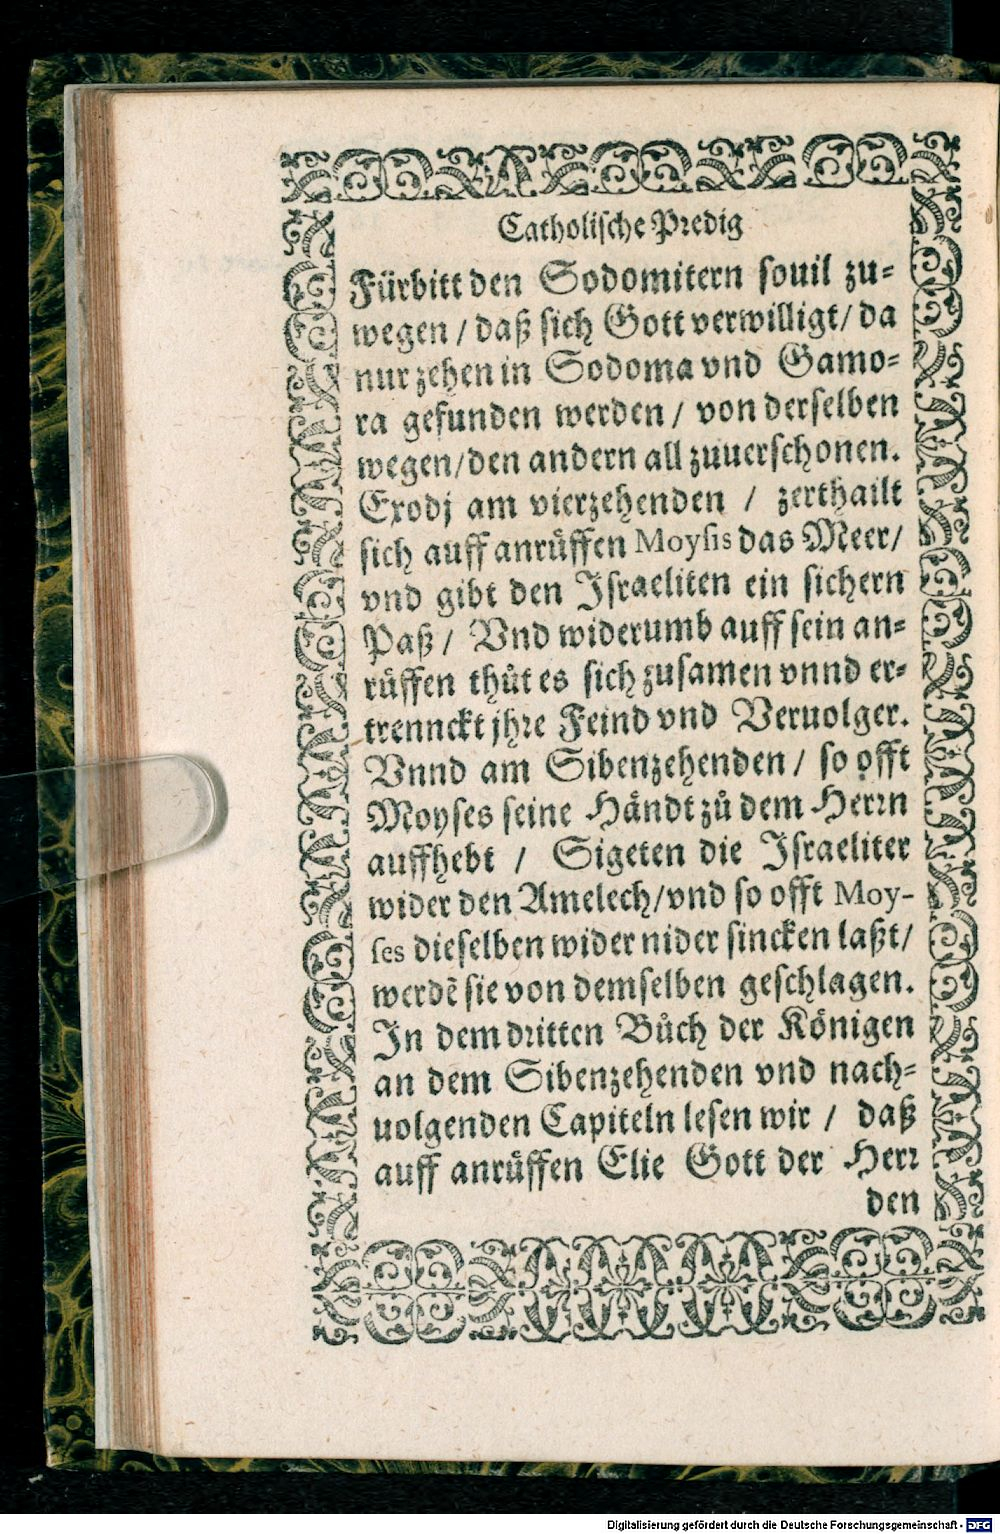 Catholische Predig
Fürbitt den Sodomitern souil zu-
wegen / daß sich Gott verwilligt/ da
nur zehen in Sodoma vnd Gamo-
ra gefunden werden / von derselben
wegen/den andern all zuuerschonen.
Exodj am vierzehenden / zerthailt
sich auff anrüffen Moysis das Meer/
vnd gibt den Israeliten ein sichern
Paß / Vnd widerumb auff sein an-
rüffen thůt es sich zusamen vnnd er-
trennckt jhre Feind vnd Veruolger.
Vnnd am Sibenzehenden / so offt
Moyses seine Händt zů dem Herrn
auffhebt / Sigeten die Israeliter
wider den Amelech/vnd so offt Moy-
ses dieselben wider nider sincken laßt/
werdẽ sie von demselben geschlagen.
In dem dritten Bůch der Königen
an dem Sibenzehenden vnd nach-
uolgenden Capiteln lesen wir / daß
auff anrüffen Elie Gott der Herr
den
Digitalisierung gefördert durch die Deutsche Forschungsgemeinschaft - DFG